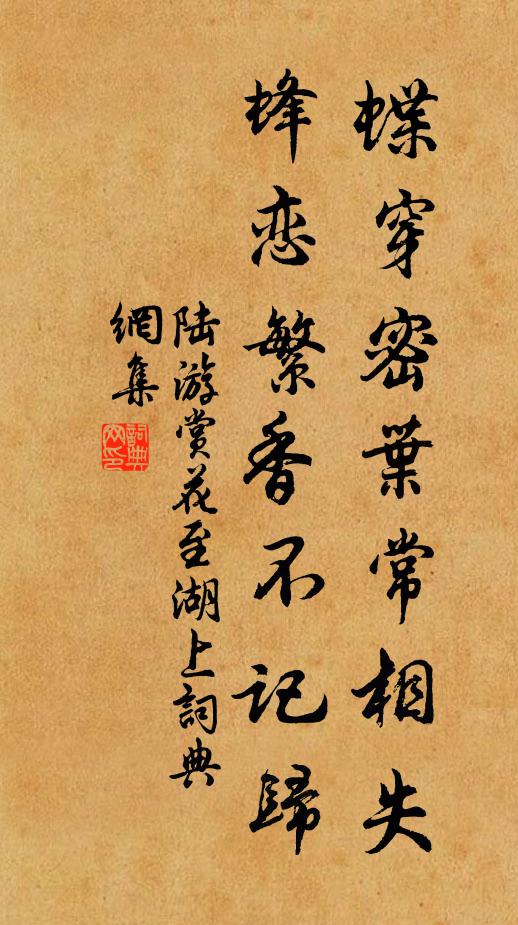 蝶穿密葉常相失
蜂恋繁香不记歸
陆游赏花至湖上詞典
網集
詞典网印